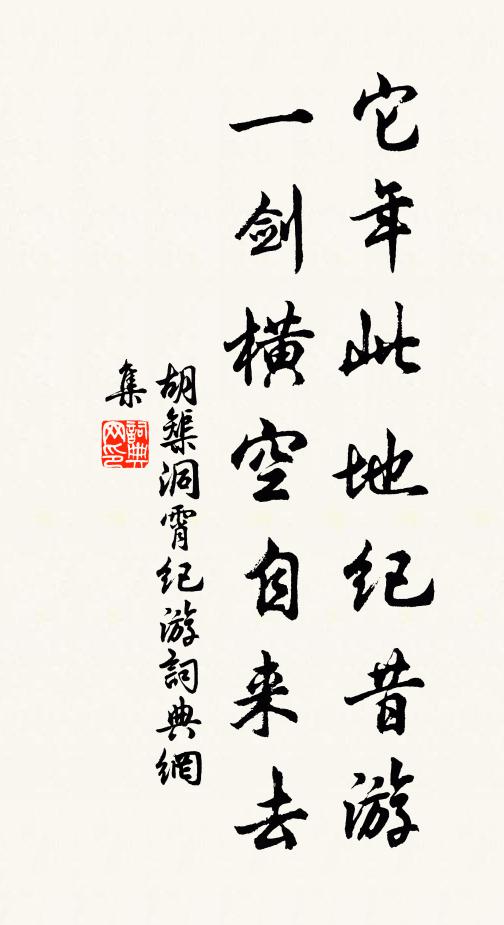 它年此地纪昔游
一剑横空自来去
胡榘洞霄纪游詞典網
集
詞典网印